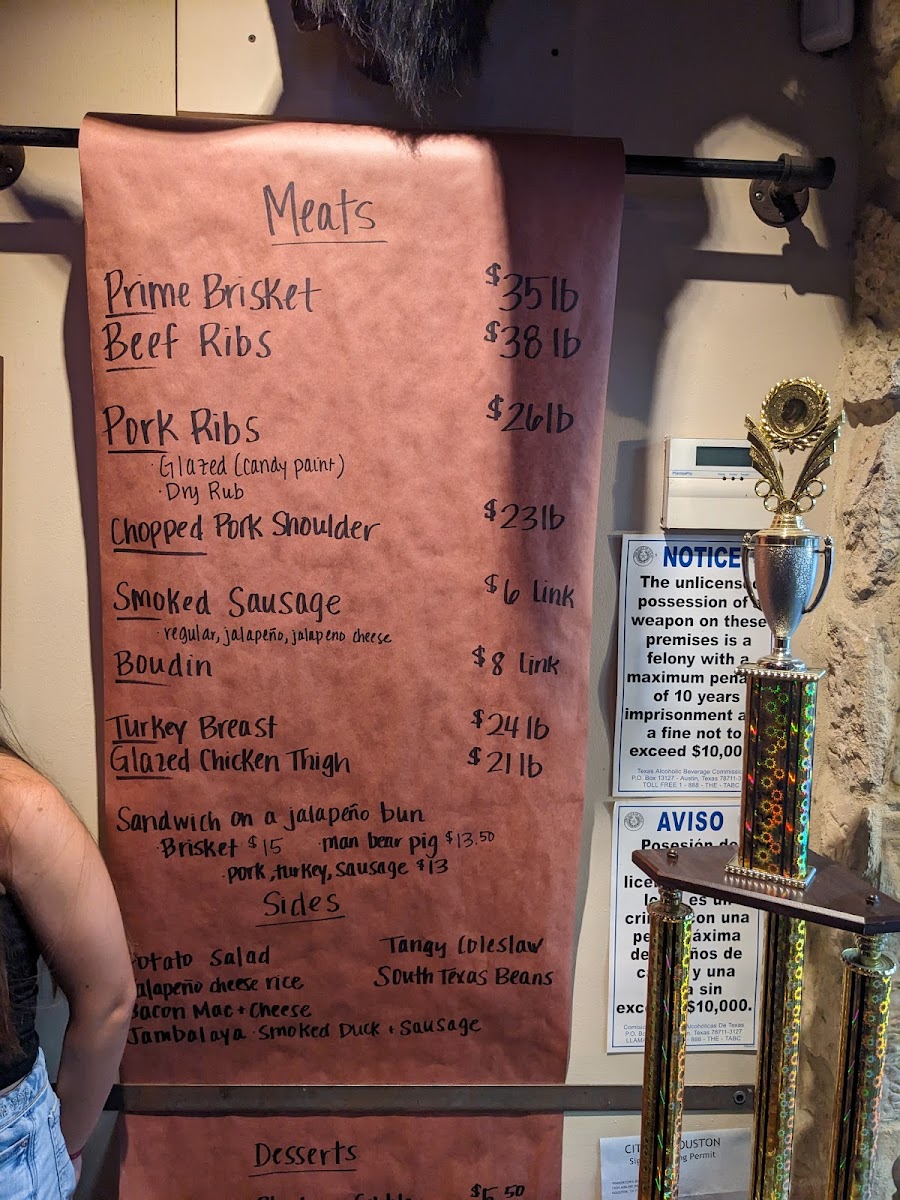 Meats
Prime Brisket $35 lb
Beef Ribs $38 lb
Pork Ribs $26 lb
·Glazed (candy paint)
·Dry Rub
Chopped Pork Shoulder $23 lb
Smoked Sausage $6 Link
·regular, jalapeño, jalapeno cheese
Boudin $8 Link
Turkey Breast $24 lb
Glazed Chicken Thigh $21 lb
Sandwich on a jalapeño bun
·Brisket $15 ·man bear pig $13.50
·pork, turkey, sausage $13
Sides
Potato Salad
Jalapeño cheese rice
Bacon Mac + Cheese
Jambalaya · Smoked Duck + Sausage
Tangy Coleslaw
South Texas Beans
Desserts
$5.50
NOTICE
The unlicensed
possession of
weapon on these
premises is a
felony with a
maximum
of 10 years
imprisonment
a fine not to
exceed $10,00
Texas Alcoholic Beverage
P.O. Box 13127 - Austin, Texas 78711-3
TOLL FREE 1 - 888 - THE - TABC
AVISO
Posesión de
es un
con una
áxima
ños de
y una
sin
$10,000.
Alcohólicas De Texas
Texas 78711-3127
888 - THE - TABC
OUSTON
Permit